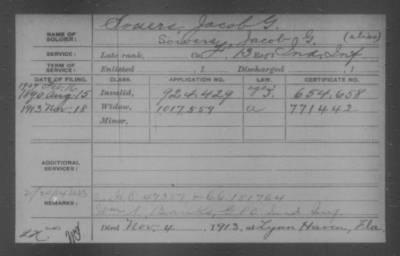 NAME OF SOLDIER: Sowers, Jacob G.
Sowers, Jacob G. (alias)
SERVICE: Late rank, Co. F, 12 Reg't Ind. Inf.
TERM OF SERVICE: Enlisted , 1 Discharged , 1
DATE OF FILING. CLASS. APPLICATION NO. LAW. CERTIFICATE NO.
1890 Aug. 15 Invalid, 924.429 654.658
1913 Nov. 18 Widow, 1017557 a 771442
Minor,
ADDITIONAL SERVICES:
REMARKS:
Died Nov. 4, 1913, at Lynn Haven, Fla.